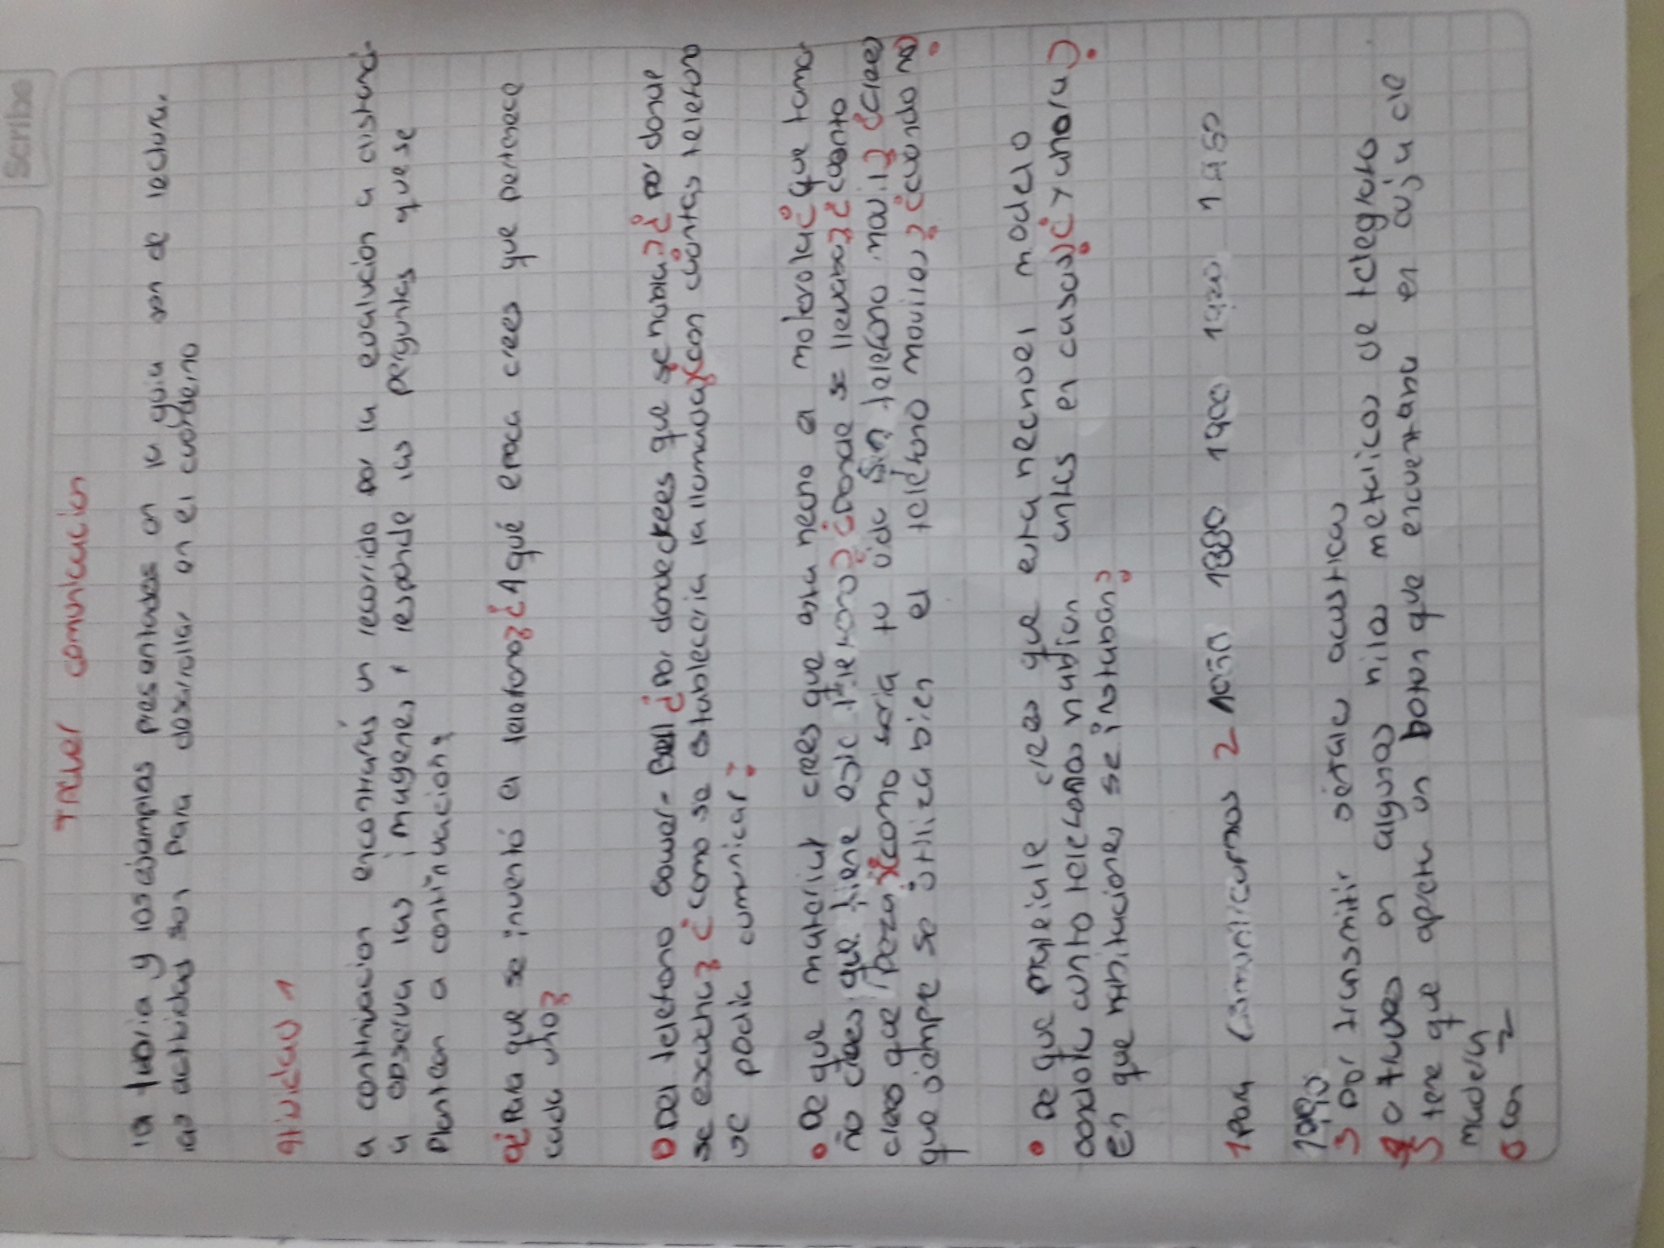 Scribe
Taller comunicacion
la tuoria y los ejamplos presantados en la guia son de lectura.
las actividas son para desarrollar en el cuorderno
atividad 1
a continuacion encontrarás un recorrido por la evolucion a distanci-
a observa las imagenes y responde las perguntas que se
plantean a continuacion
a¿Para que se inventó el telefono?¿A qué época crees que pertenece
cada uno?
Del telefono Gower-Bell ¿Por dondecrees que se habla?¿Por donde
se escucha?¿como se estableceria la llamada?¿con cuántas telefono
se podia comunicar?
• De que material crees que esta hecho el motorola¿que tamaño
ño crees que tiene este telefono?¿Donde se llevaba?¿cuanto
crees que peza?¿como seria tu vida sin telefono movil?¿crees
que siempre se utiliza bien el telefono movires?¿cuando no?
• De que material crees que esta hechoel modelo
candole cuntotelefonos habian antes en casas?¿Y ahora?
En que habitaciones se instaban?
1 Para comunicarnos 2 1877 1880 1900 1920 1950
1990
3 por transmitir señale acusticas
4 a traves en algunos hilos metalicos de telegrafo
5 tene que apretar un boton que encuentano en caja de
madera
6 con 2